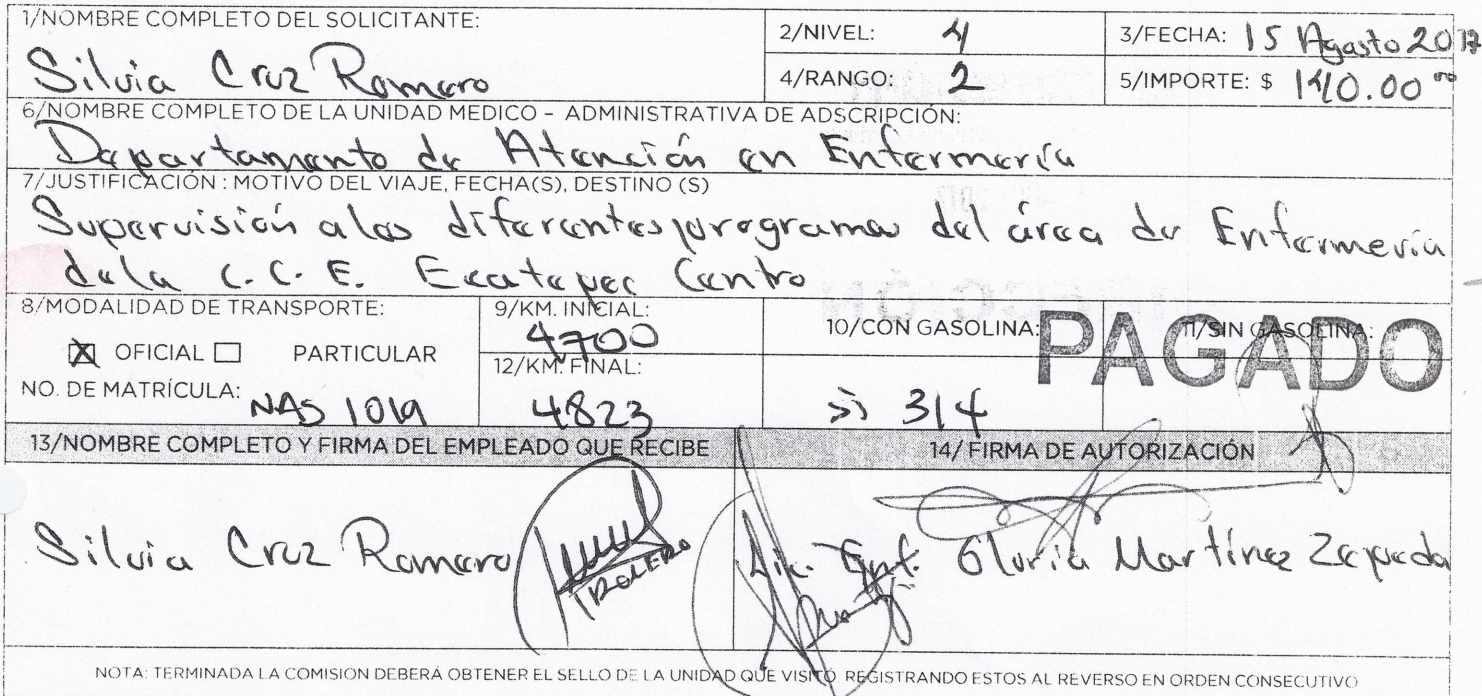 1/NOMBRE COMPLETO DEL SOLICITANTE:
Silvia Cruz Romero
2/NIVEL: 4
3/FECHA: 15 Agosto 2017
4/RANGO: 2
5/IMPORTE: $ 140.00 ºº
6/NOMBRE COMPLETO DE LA UNIDAD MEDICO - ADMINISTRATIVA DE ADSCRIPCIÓN:
Departamento de Atención en Enfermería
7/JUSTIFICACIÓN : MOTIVO DEL VIAJE, FECHA(S), DESTINO (S)
Supervisión a los diferentes programas del área de Enfermería
de la C. C. E. Ecatepec Centro
8/MODALIDAD DE TRANSPORTE:
OFICIAL PARTICULAR
NO. DE MATRÍCULA: NAS 1019
9/KM. INICIAL:
4700
12/KM. FINAL:
4823
10/CON GASOLINA:
si 314
11/SIN GASOLINA:
PAGADO
13/NOMBRE COMPLETO Y FIRMA DEL EMPLEADO QUE RECIBE
14/ FIRMA DE AUTORIZACIÓN
Silvia Cruz Romero
ROMERO
Lic. Enf. Gloria Martínez Zepeda
NOTA: TERMINADA LA COMISIÓN DEBERÁ OBTENER EL SELLO DE LA UNIDAD QUE VISITÓ REGISTRANDO ESTOS AL REVERSO EN ORDEN CONSECUTIVO